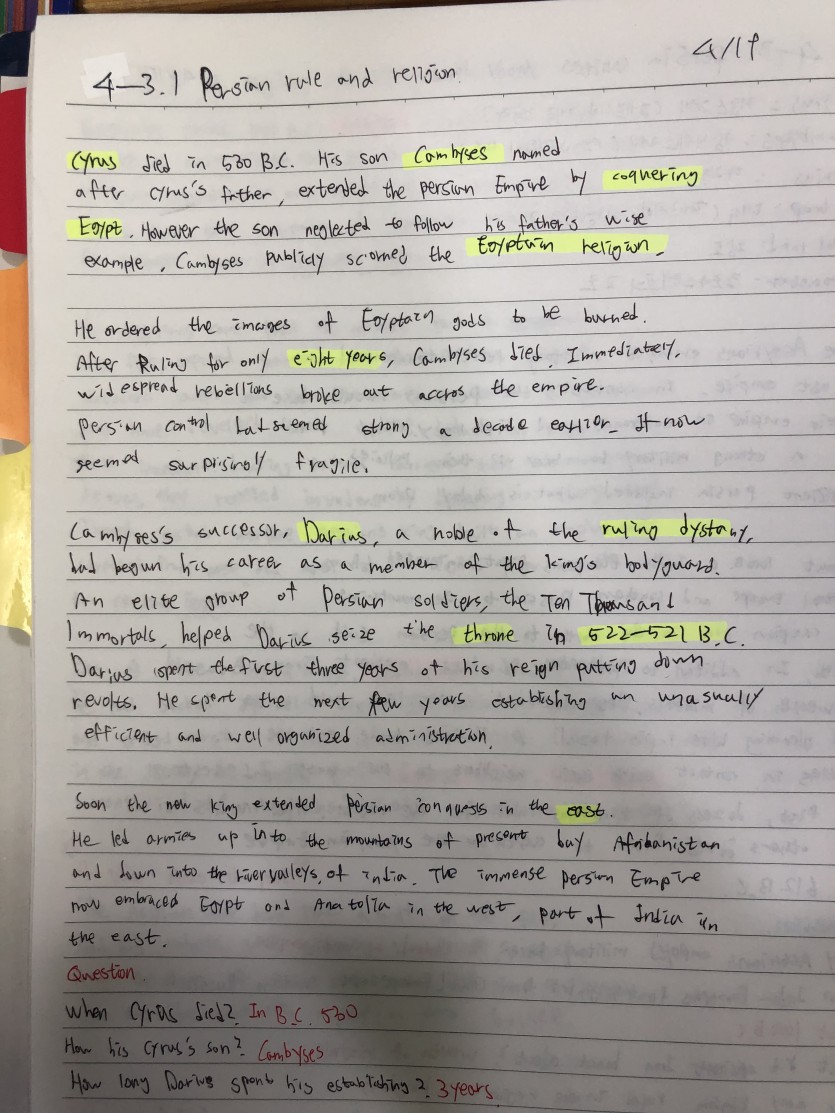 4/19
4-3.1 Persian rule and religion.
Cyrus died in 530 B.C. His son Cambyses named
after cyrus's father, extended the persian Empire by coquering
Egypt. However the son neglected to follow his father's wise
example, Cambyses publicly scorned the Egyptain religion.
He ordered the images of Egyptain gods to be burned.
After Ruling for only eight years, Cambyses died. Immediately,
widespread rebellions broke out accros the empire.
persian control hat seemed strong a decade earlier. It now
seemed surprisingly fragile.
Cambyses's successor, Darius, a noble of the ruling dystany,
had begun his career as a member of the king's bodyguard.
An elite group of Persian soldiers, the Ten Thousand
Immortals, helped Darius seize the throne in 522-521 B.C.
Darius spent the first three years of his reign putting down
revolts. He spent the next few years establishing an unasually
efficient and well organized administration.
Soon the new king extended Persian conquests in the east.
He led armies up into the mountains of present bay Afghanistan
and down into the river valleys, of india. The immense persian Empire
now embraced Egypt and Anatolia in the west, part of India in
the east.
Question.
When Cyrus died? In B.C. 530
How his Cyrus's son? Cambyses
How long Darius spent his establishing? 3 years